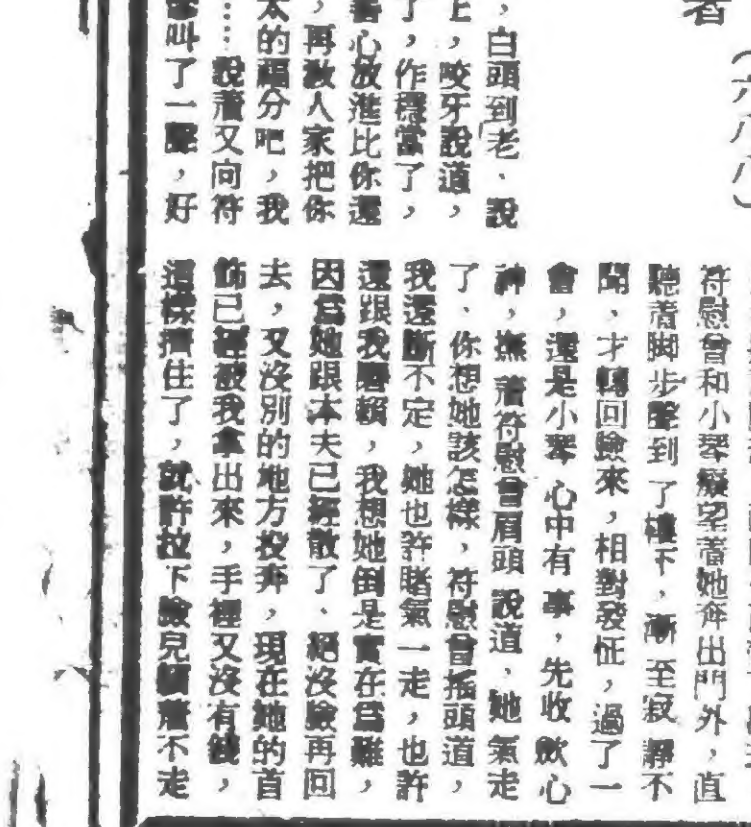 者
（六八八）
，白頭到老、說
上，咬牙說道，
了，作穩當了，
著心放進比你還
，再教人家把你
太的福分吧，我
……說著又向符
叫了一聲，好
符慰曾和小琴癡望著她奔出門外，直
聽著脚步聲到了樓下，漸至寂靜不
聞、才轉回臉來，相對發怔，過了一
會，還是小琴心中有事，先收歛心
神，撫着符慰曾肩頭說道，她氣走
了、你想她該怎樣，符慰曾搖頭道，
我還斷不定，她也許賭氣一走，也許
還跟我磨賴，我想她倒是實在爲難，
因爲她跟本夫已經散了、絕沒臉再回
去，又沒別的地方投奔，現在她的首
飾已經被我拿出來，手裡又沒有錢，
這樣擠住了，就許拉下臉兒賴着不走